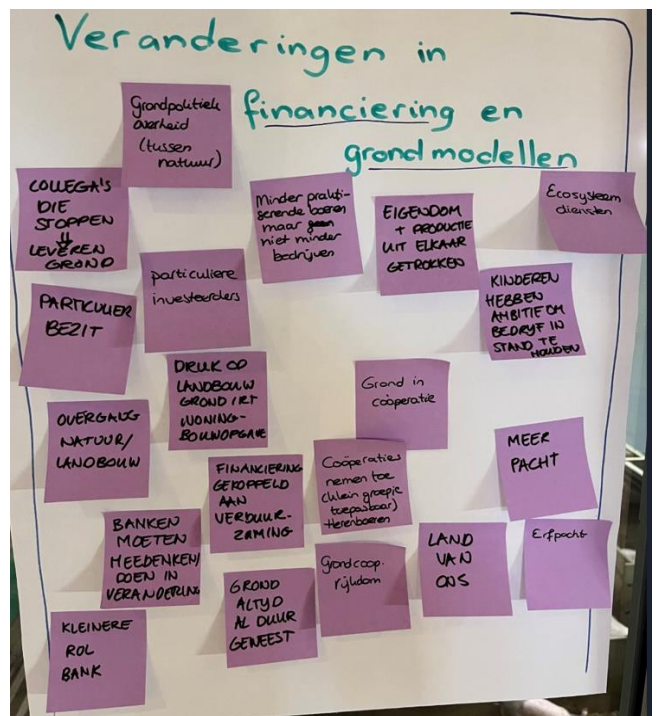 Veranderingen in
financiering en
grondmodellen
Grondpolitiek
overheid
(tussen
natuur)
COLLEGA'S
DIE
STOPPEN
⇓
LEVEREN
GROND
Minder prakti-
serende boeren
maar geen
niet minder
bedrijven
EIGENDOM
+ PRODUCTIE
UIT ELKAAR
GETROKKEN
Ecosysteem
diensten
PARTICULIER
BEZIT
particuliere
investeerders
KINDEREN
HEBBEN
AMBITIE OM
BEDRIJF IN
STAND TE
HOUDEN
DRUK OP
LANDBOUW
GROND IRT
WONING-
BOUWOPGAVE
Grond in
coöperatie
OVERGANG
NATUUR/
LANDBOUW
FINANCIERING
GEKOPPELD
AAN
VERDUUR-
ZAMING
Coöperaties
nemen toe
(klein groepje
toepasbaar)
Herenboeren
MEER
PACHT
BANKEN
MOETEN
MEEDENKEN/
DOEN IN
VERANDERING
GROND
ALTYD
AL DUUR
GEWEEST
Grondcoop.
rijkdom
LAND
VAN
ONS
Erfpacht
KLEINERE
ROL
BANK